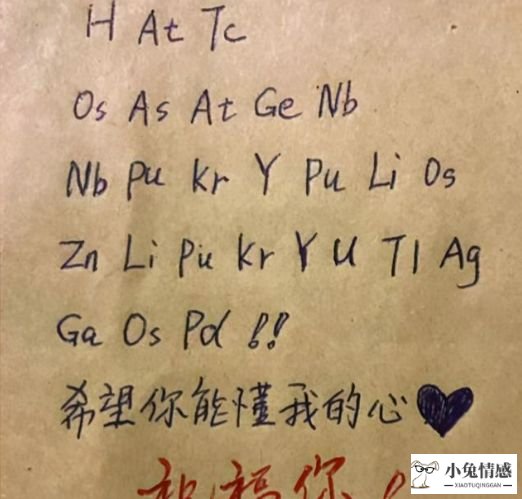 H At Tc
Os As At Ge Nb
Nb Pu Kr Y Pu Li Os
Zn Li Pu Kr Y U Tl Ag
Ga Os Pd !!
希望你能懂我的心
祝福你
小兔情感
XIAOTUQINGGAN